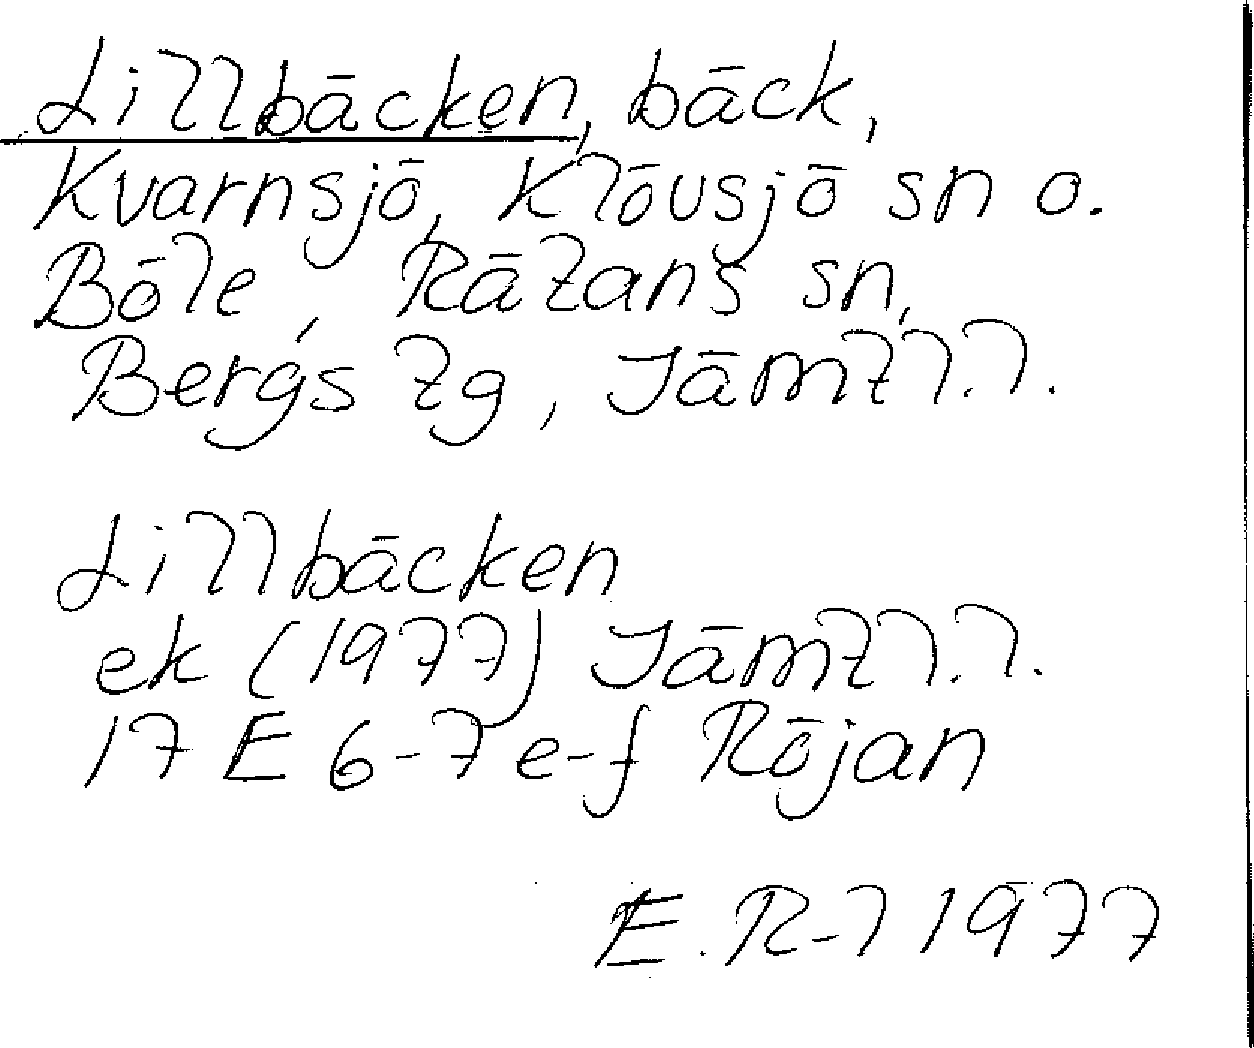 Lillbäcken, bäck,
Kvarnsjö, Klövsjö sn o.
Böle, Rätans sn,
Bergs tg, Jämtl.l.
Lillbäcken
ek (1977) Jämtl.l.
17 E 6-7 e-f Röjan
E. R-l 1977